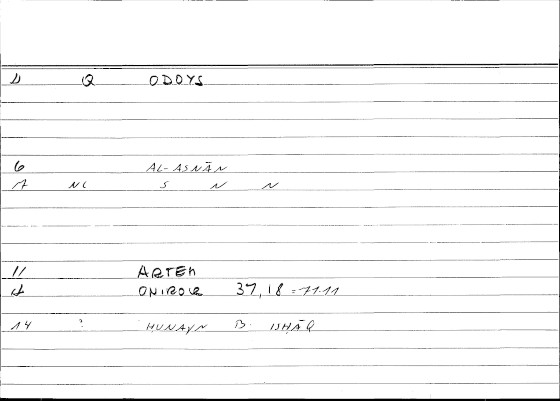 Q ODOYS
6 AL-ASNĀN
A NC S N N
11 ARTEM
ONIROCR 37,18 = 11.11
14 ? HUNAYN B. ISHĀQ